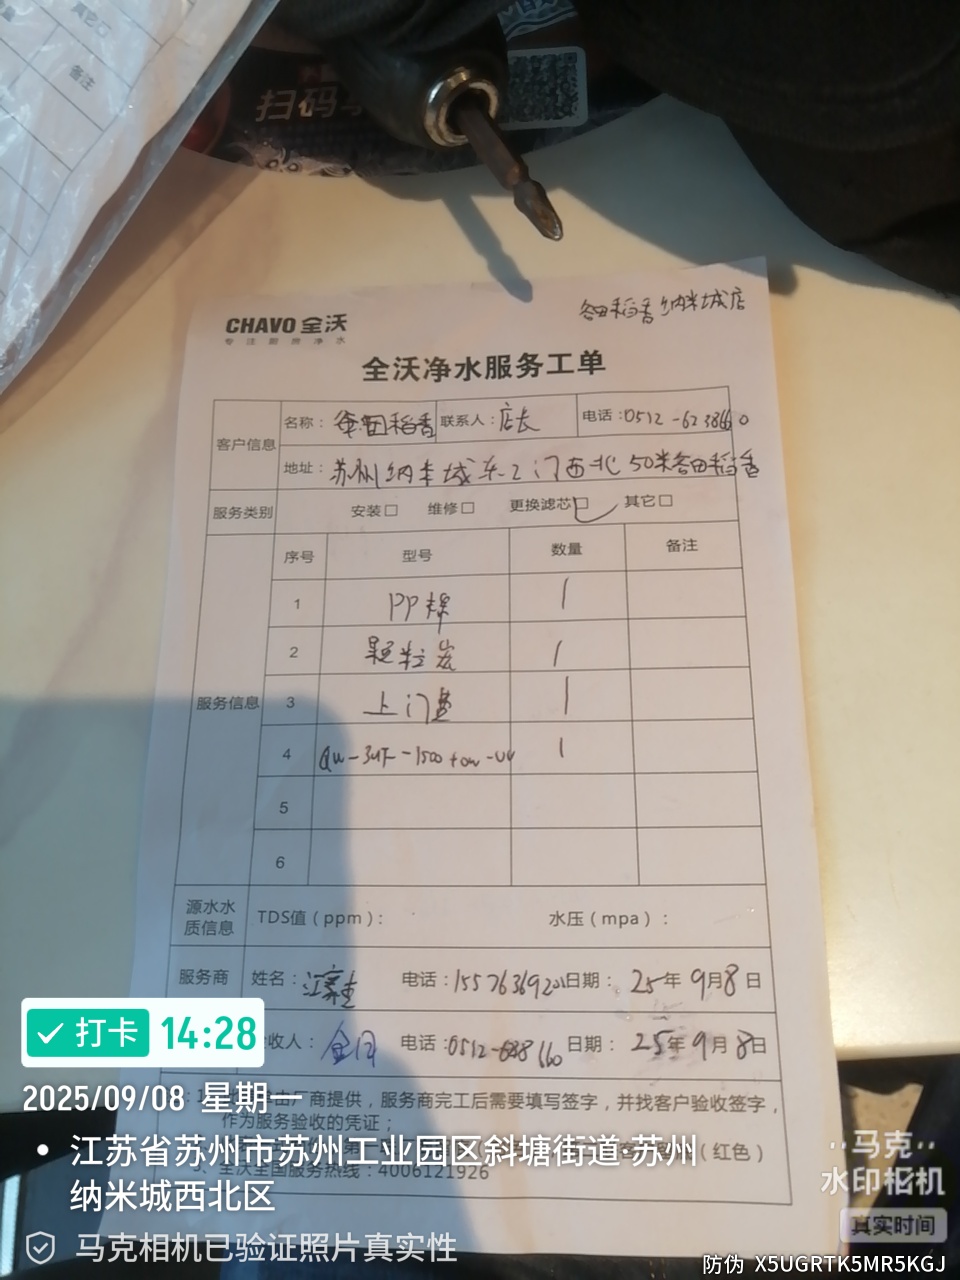 其它□
备注
扫码
谷田稻香纳米城店
CHAVO 全沃
专注厨房净水
全沃净水服务工单
客户信息 名称： 谷田稻香 联系人：店长 电话：0512-6238660
地址： 苏州纳米城东2门西北50米谷田稻香
服务类别 安装□ 维修□ 更换滤芯□ 其它□
服务信息 序号 型号 数量 备注
1 PP棉 1
2 颗粒炭 1
3 上门费 1
4 1
5
6
源水水质信息 TDS值（ppm）： 水压（mpa）：
服务商 姓名： 电话： 日期： 25年9月8日
收人： 电话： 日期： 25年9月8日
由厂商提供，服务商完工后需要填写签字，并找客户验收签字，
作为服务验收的凭证；
（红色）
3、全沃全国服务热线：4006121926
打卡 14:28
2025/09/08 星期一
江苏省苏州市苏州工业园区斜塘街道·苏州
纳米城西北区
马克相机已验证照片真实性
马克
水印相机
真实时间
防伪 X5UGRTK5MR5KGJ